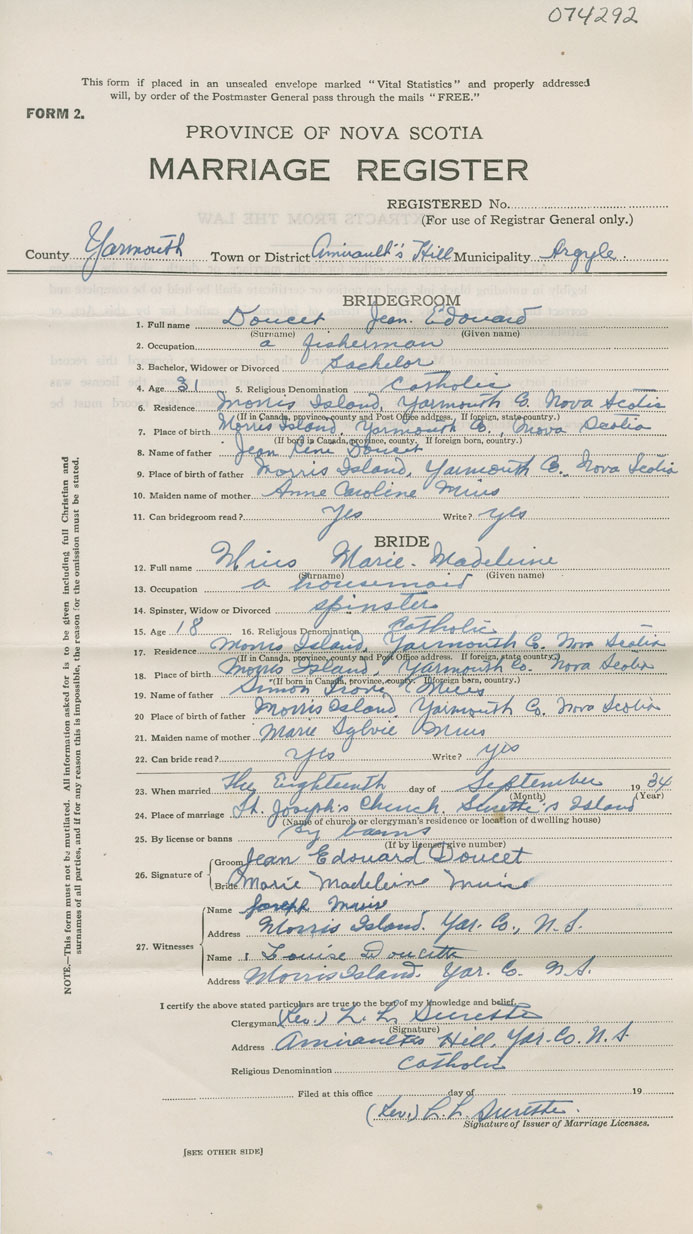 074292
This form if placed in an unsealed envelope marked "Vital Statistics" and properly addressed
will, by order of the Postmaster General pass through the mails "FREE."
FORM 2.
PROVINCE OF NOVA SCOTIA
MARRIAGE REGISTER
REGISTERED No.
(For use of Registrar General only.)
County Yarmouth Town or District Amirault's Hill Municipality Argyle
BRIDEGROOM
1. Full name Doucet Jean Edouard
(Surname) (Given name)
2. Occupation a fisherman
3. Bachelor, Widower or Divorced Bachelor
4. Age 31 5. Religious Denomination Catholic
6. Residence Morris Island, Yarmouth Co. Nova Scotia
(If in Canada, province, county and Post Office address. If foreign, state country.)
7. Place of birth Morris Island, Yarmouth Co., Nova Scotia
(If born in Canada, province, county. If foreign born, country.)
8. Name of father Jean René Doucet
9. Place of birth of father Morris Island, Yarmouth Co. Nova Scotia
10. Maiden name of mother Anne Caroline Mius
11. Can bridegroom read? Yes Write? yes
BRIDE
12. Full name Mius Marie Madeleine
(Surname) (Given name)
13. Occupation a housemaid
14. Spinster, Widow or Divorced spinster
15. Age 18 16. Religious Denomination Catholic
17. Residence Morris Island, Yarmouth Co. Nova Scotia
(If in Canada, province, county and Post Office address. If foreign, state country.)
18. Place of birth Morris Island, Yarmouth Co. Nova Scotia
*(If born in Canada, province, county. If foreign born, country.)
19. Name of father Simon Mius
20 Place of birth of father Morris Island, Yarmouth Co. Nova Scotia
21. Maiden name of mother Marie Sylvie Mius
22. Can bride read? Yes Write? yes
23. When married The Eighteenth day of September 1934
(Month) (Year)
24. Place of marriage St. Joseph's Church, Surette's Island
(Name of church or clergyman's residence or location of dwelling house)
25. By license or banns By banns
(If by license give number)
26. Signature of
Groom Jean Edouard Doucet
Bride Marie Madeleine Muise
27. Witnesses
Name Joseph Muise
Address Morris Island. Yar. Co., N.S.
Name Louise Doucette
Address Morris Island. Yar. Co. N.S.
I certify the above stated particulars are true to the best of my knowledge and belief.
Clergyman (Rev.) L. L. Surette
(Signature)
Address Amirault's Hill, Yar. Co. N.S.
Religious Denomination Catholic
Filed at this office day of 19
(Rev.) L. L. Surette
Signature of Issuer of Marriage Licenses.
[SEE OTHER SIDE]
NOTE.—This form must not be mutilated. All information asked for is to be given including full Christian and
surnames of all parties, and if for any reason this is impossible, the reason for the omission must be stated.